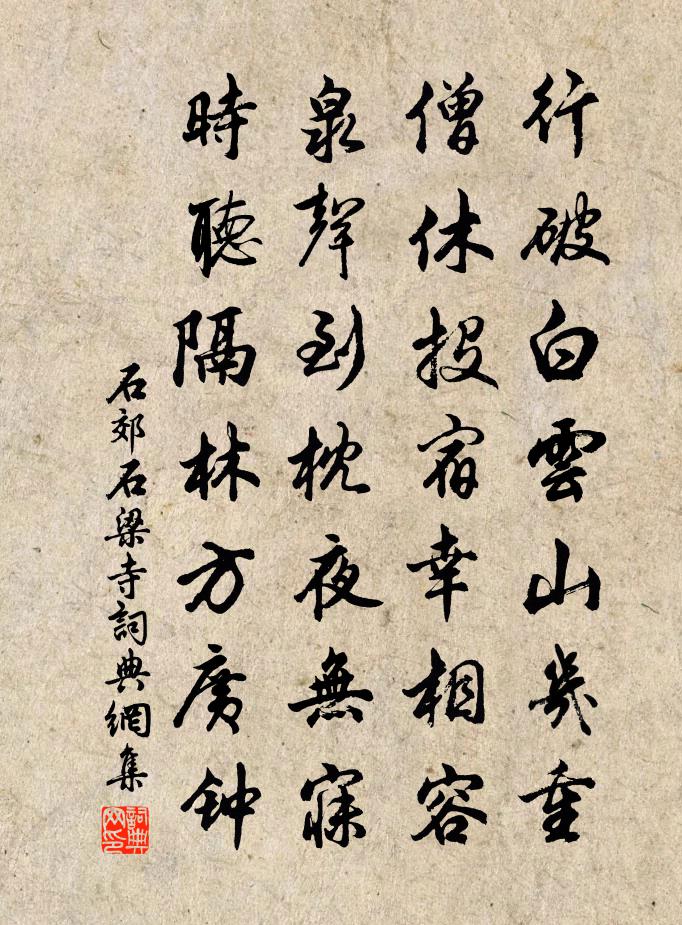 行破白雲山幾重
僧休投宿幸相容
泉聲到枕夜無寐
時聽隔林方廣钟
石郊石梁寺詞典網集
詞典
网印